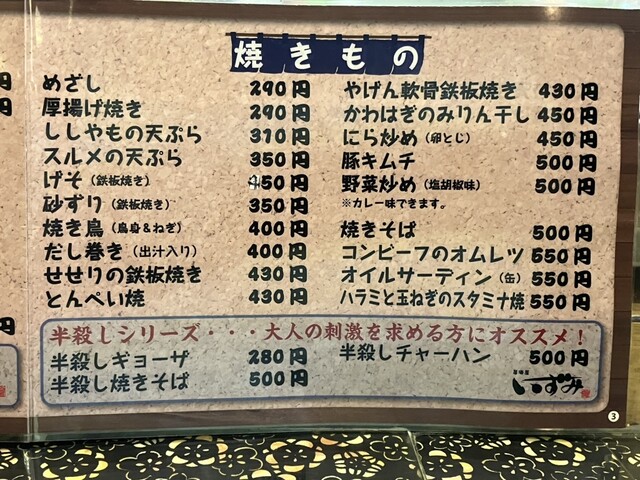 焼きもの
めざし 290円
厚揚げ焼き 290円
ししゃもの天ぷら 310円
スルメの天ぷら 350円
げそ（鉄板焼き） 350円
砂ずり（鉄板焼き） 350円
焼き鳥（鳥身&ねぎ） 400円
だし巻き（出汁入り） 400円
せせりの鉄板焼き 430円
とんぺい焼 430円
やげん軟骨鉄板焼き 430円
かわはぎのみりん干し 450円
にら炒め（卵とじ） 450円
豚キムチ 500円
野菜炒め（塩胡椒味） 500円
※カレー味できます。
焼きそば 500円
コンビーフのオムレツ 550円
オイルサーディン（缶） 550円
ハラミと玉ねぎのスタミナ焼 550円
半殺しシリーズ・・・大人の刺激を求める方にオススメ！
半殺しギョーザ 280円
半殺し焼きそば 500円
半殺しチャーハン 500円
居酒屋
いずみ
3
円
円
円